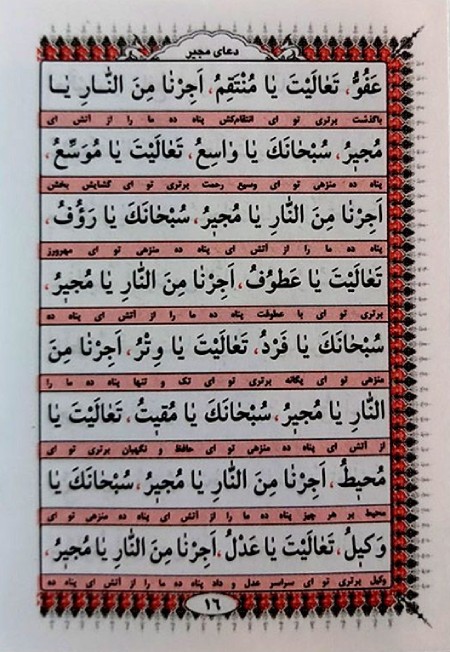 دعای مجیر
عَفُوُّ، تَعٰالَیْتَ یٰا مُنْتَقِمُ، اَجِرْنٰا مِنَ النّٰارِ یٰا
باگذشت برتری تو ای انتقام‌کش پناه ده ما را از آتش ای
مُجیٖرُ، سُبْحٰانَكَ یٰا وٰاسِعُ، تَعٰالَیْتَ یٰا مُوَسِّعُ،
پناه ده منزهی تو ای وسیع رحمت برتری تو ای گشایش بخش
اَجِرْنٰا مِنَ النّٰارِ یٰا مُجیٖرُ، سُبْحٰانَكَ یٰا رَؤُفُ،
پناه ده ما را از آتش ای پناه ده منزهی تو ای مهرورز
تَعٰالَیْتَ یٰا عَطُوفُ، اَجِرْنٰا مِنَ النّٰارِ یٰا مُجیٖرُ،
برتری تو ای با عطوفت پناه ده ما را از آتش ای پناه ده
سُبْحٰانَكَ یٰا فَرْدُ، تَعٰالَیْتَ یٰا وِتْرُ، اَجِرْنٰا مِنَ
منزهی تو ای یگانه برتری تو ای تک و تنها پناه ده ما را
النّٰارِ یٰا مُجیٖرُ، سُبْحٰانَكَ یٰا مُقیٖتُ، تَعٰالَیْتَ یٰا
از آتش ای پناه ده منزهی تو ای حافظ و نگهبان برتری تو ای
مُحیٖطُ، اَجِرْنٰا مِنَ النّٰارِ یٰا مُجیٖرُ، سُبْحٰانَكَ یٰا
محیط بر هر چیز پناه ده ما را از آتش ای پناه ده منزهی تو ای
وَکیٖلُ، تَعٰالَیْتَ یٰا عَدْلُ، اَجِرْنٰا مِنَ النّٰارِ یٰا مُجیٖرُ،
وکیل برتری تو ای سراسر عدل و داد پناه ده ما را از آتش ای پناه ده
۱۶